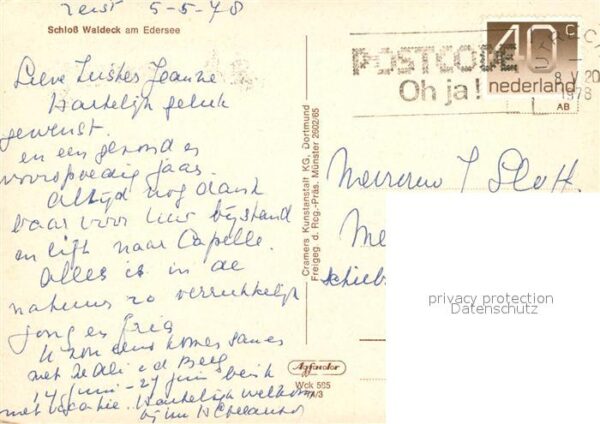 Zeist 5-5-78
Schloß Waldeck am Edersee
Lieve Zuster Jeanne
Hartelijk geluk
gewenst.
en een gezond en
voorspoedig jaar.
Altijd nog dank
baar voor Uw bijstand
en lift naar Capelle.
Alles is in de
natuur zo verrukkelijk
jong en fris
U zou eens komen samen
met Zr Ali v d Berg
14 juni - 27 juni ben ik
met vacantie. Hartelijk welkom
bij
Cramers Kunstanstalt KG, Dortmund
Freigeg d. Reg.-Präs. Münster 2602/65
Agfacolor
Wck 565
A/3
POSTCODE
Oh ja!
40c
nederland
8 V 20
1978
AB
Mevrouw J Slott
Me
Schieb
privacy protection
Datenschutz